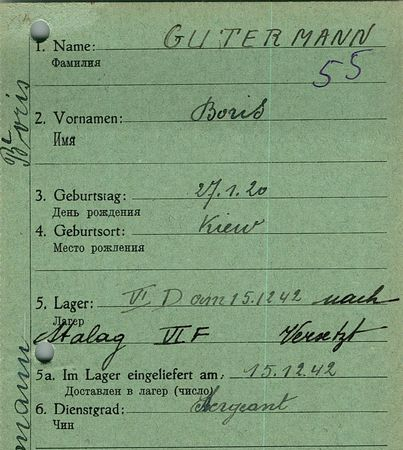 1. Name: GUTERMANN
Фамилия
55
2. Vornamen: Boris
Имя
Boris
3. Geburtstag: 27.1.20
День рождения
4. Geburtsort: Kiew
Место рождения
5. Lager: VI D am 15.12 42 nach
Лагер
Stalag VI F Versetzt
5a. Im Lager eingeliefert am: 15.12.42
Доставлен в лагер (число)
6. Dienstgrad: Sergeant
Чин
mann